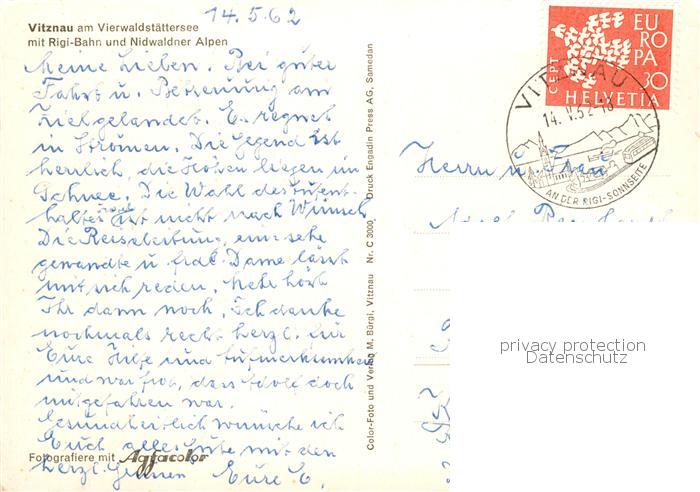 14.5.62
Vitznau am Vierwaldstättersee
mit Rigi-Bahn und Nidwaldner Alpen
Meine Lieben. Bei guter
Fahrt u. Betreuung am
Ziel gelandet. Es regnet
in Strömen. Die Gegend ist
herrlich, die Höhen liegen im
Schnee. Die Wahl des Aufent-
haltes ist nicht nach Wunsch
Die Reiseleitung, eine sehr
gewandte u. frdl. Dame lässt
mit sich reden. Mehr hört
Ihr dann noch. Ich danke
nochmals recht herzl. für
Eure Hilfe und Aufmerksamkeit
und war froh, dass Adolf doch
mitgefahren war.
Gesundheitlich wünsche ich
Euch alles Gute mit den
herzl. Grüssen Eure E.
Fotografiere mit Agfacolor
Color-Foto und Verlag M. Bürgi, Vitznau Nr. C 3000 Druck Engadin Press AG, Samedan
EUROPA
CEPT
30
HELVETIA
VITZNAU
14. V. 62-18
AN DER RIGI-SONNSEITE
Herrn u. Frau
privacy protection
Datenschutz